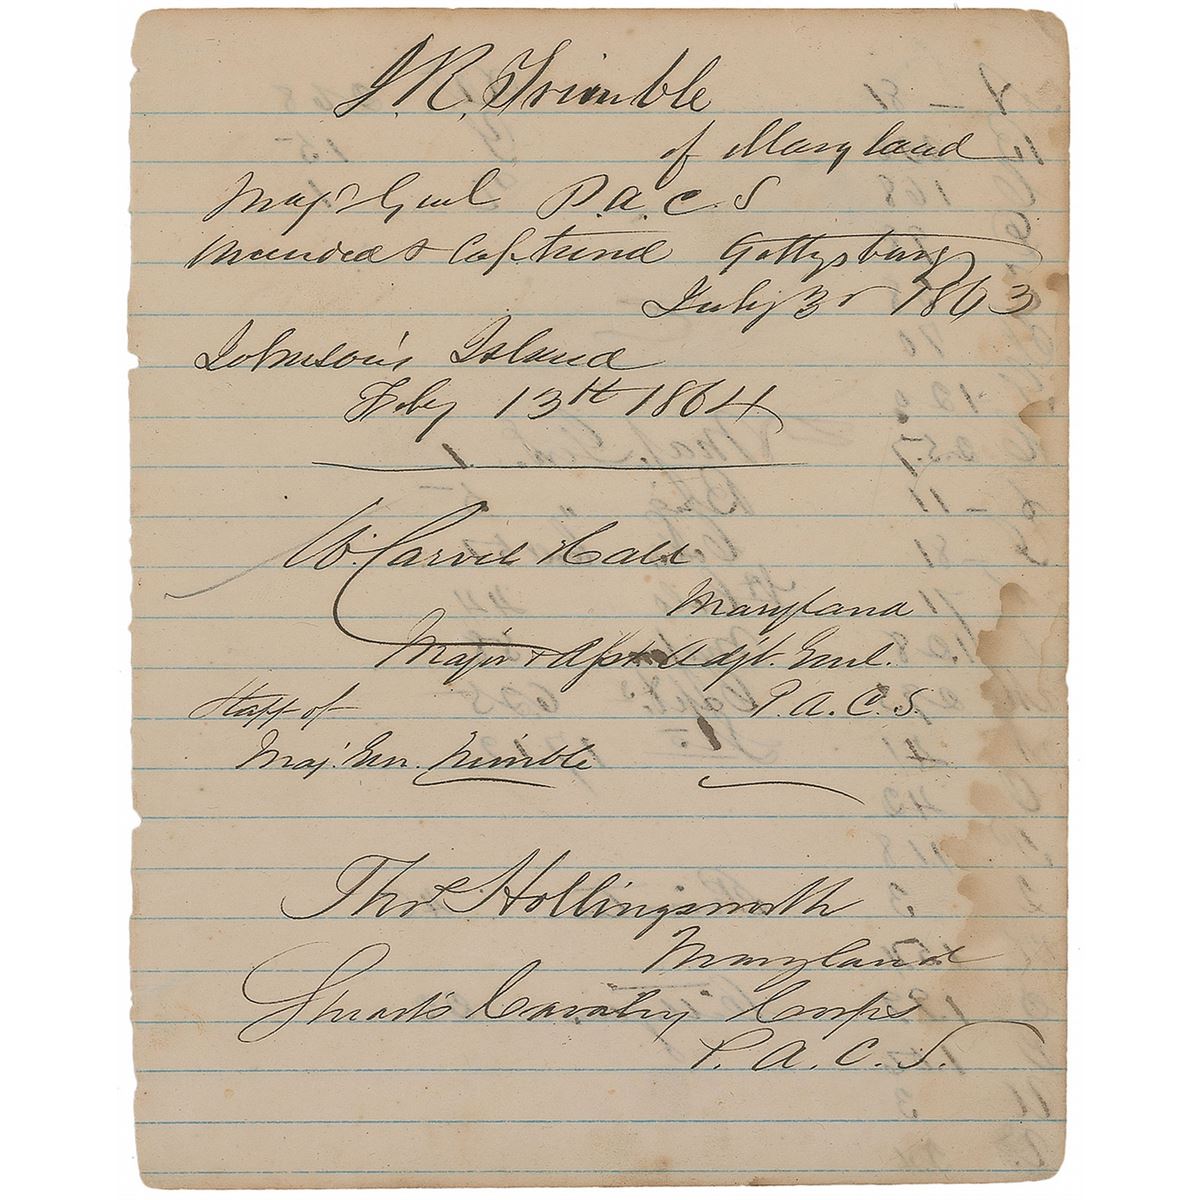 I. R. Trimble
of Maryland
Maj' Genl P.A.C.S
Wounded & Captured Gettysburg
July 3d 1863
Johnson's Island
Feby 13th 1864
W. Carvel Hall
Maryland
Major & Asst Adjt. Genl.
Staff of P.A.C.S.
Maj. Gen. Trimble
Thos Hollingsworth
Maryland
Stuart's Cavalry Corps
P.A.C.S.